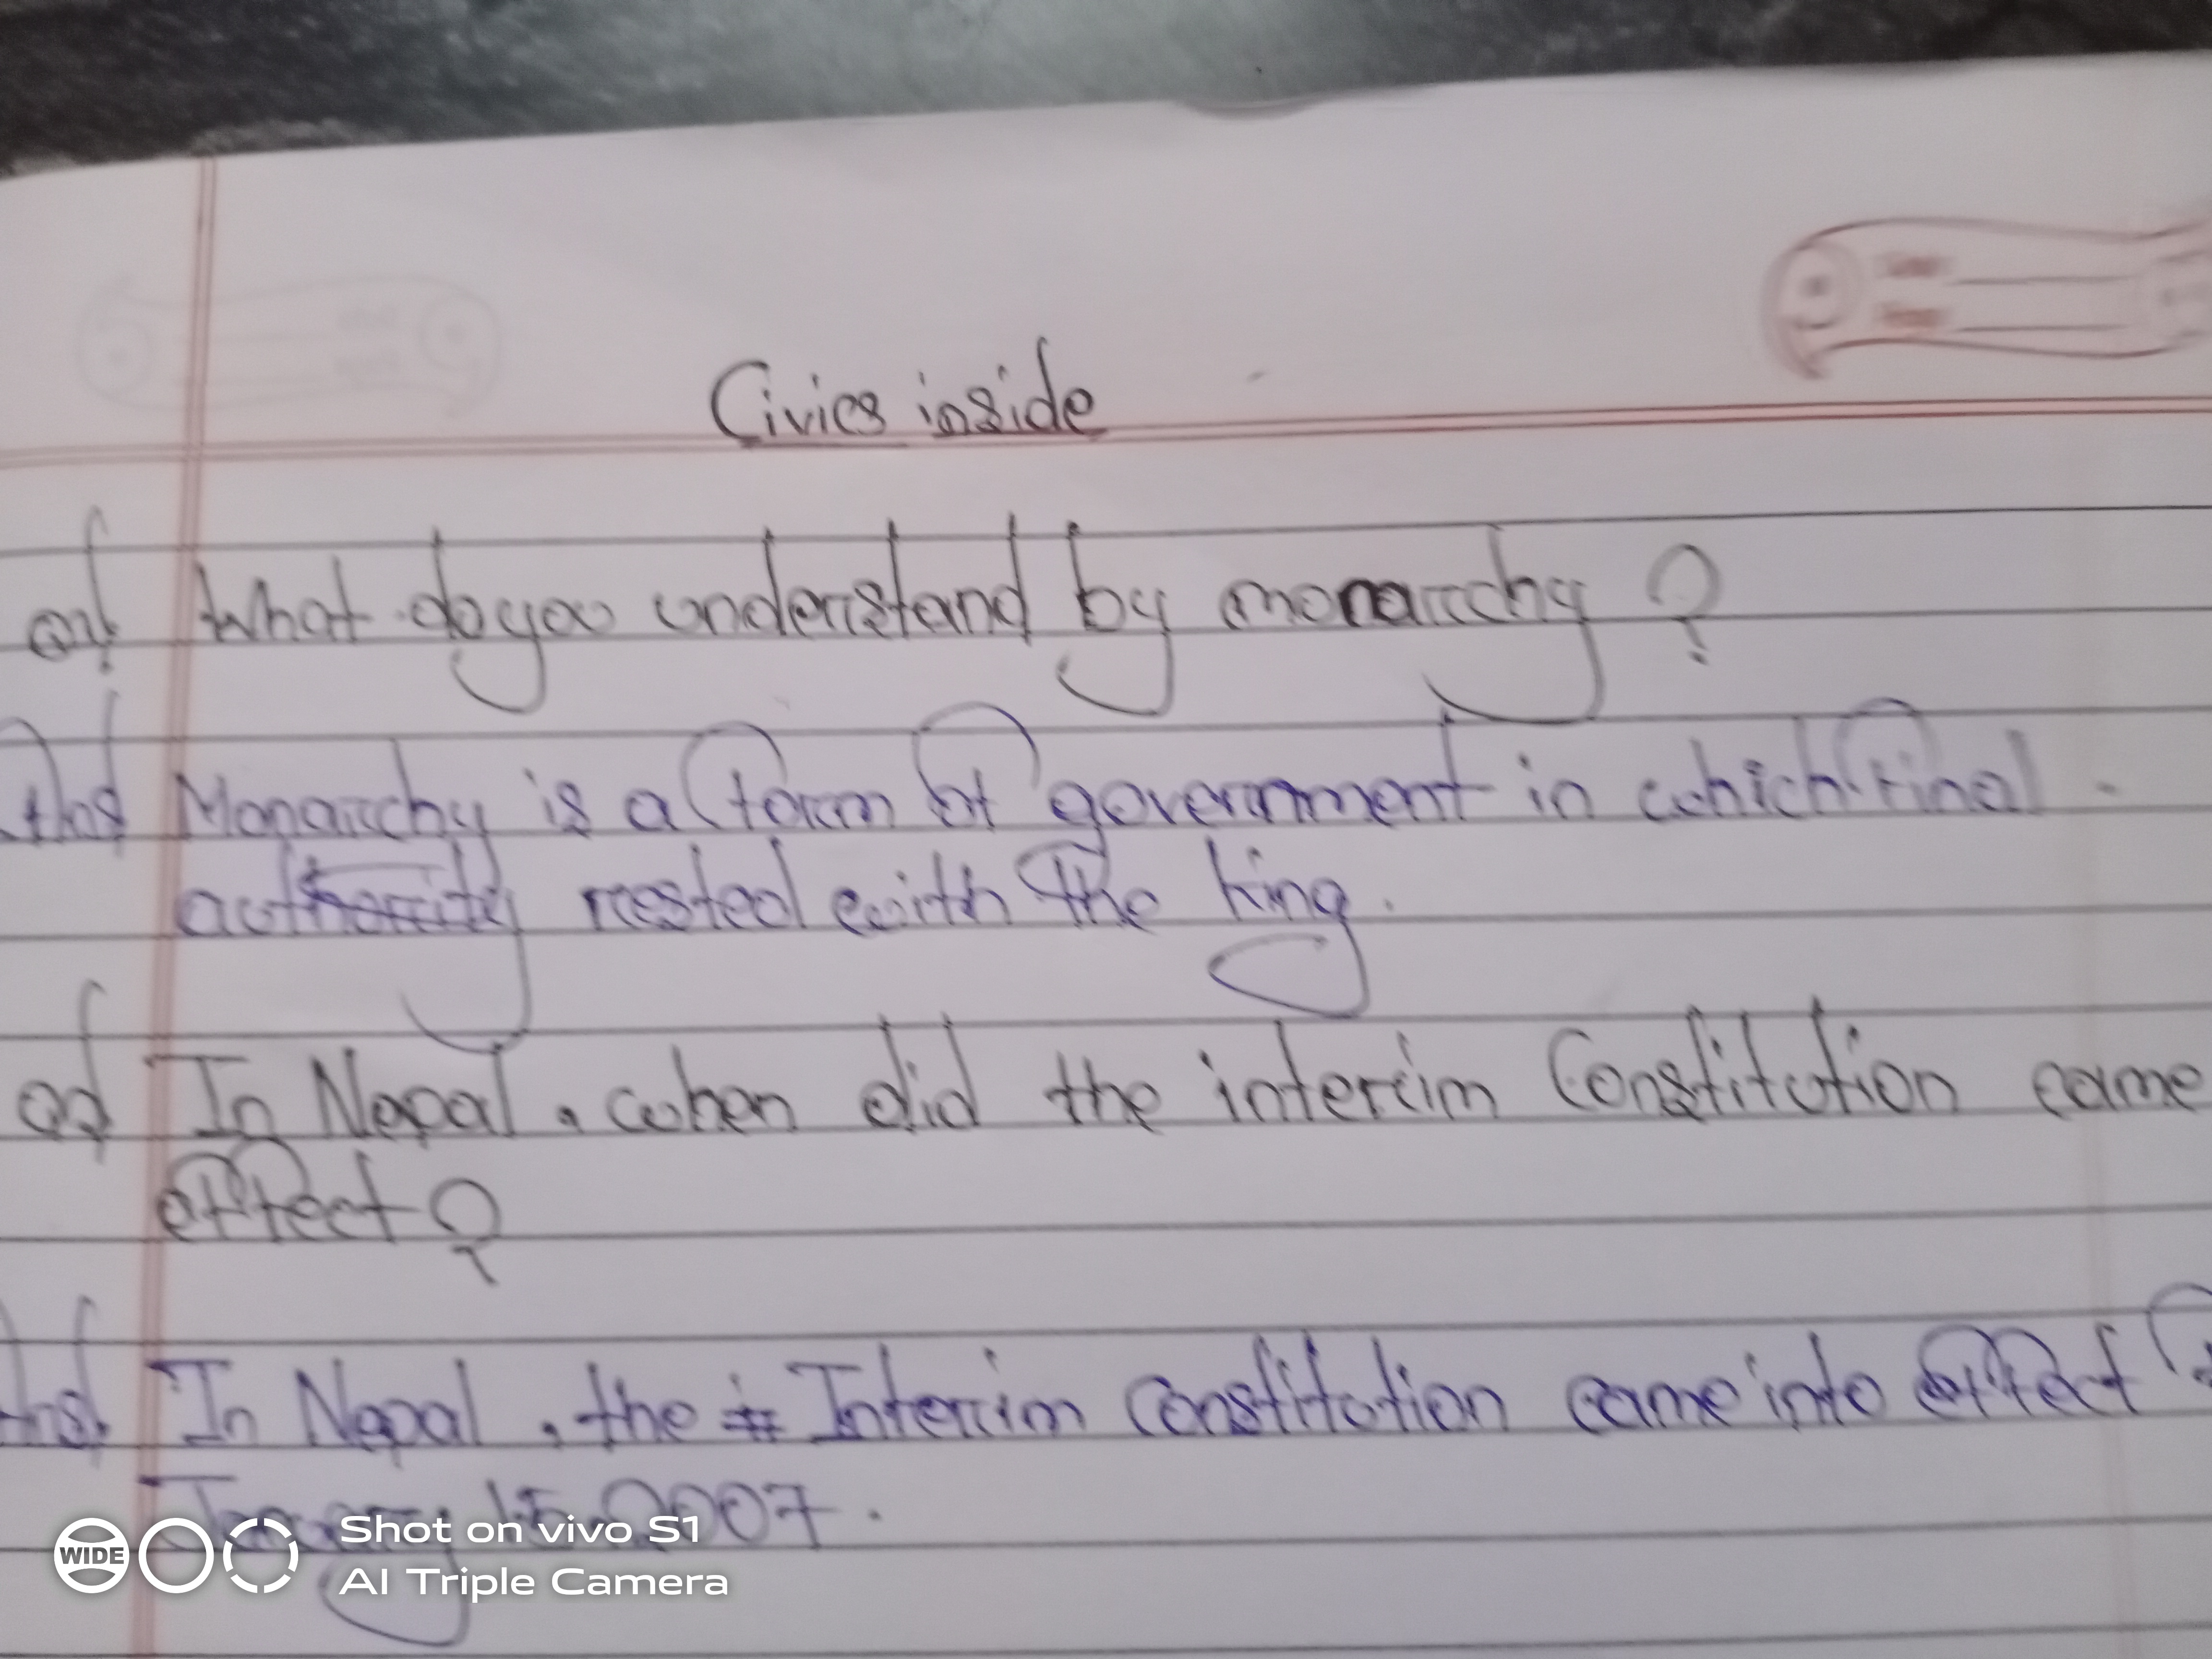 Civics inside
Q1. What do you understand by monarchy ?
Ans. Monarchy is a form of government in which final
authority rested with the king.
Q2. In Nepal, when did the interim Constitution came
effect?
Ans. In Nepal, the Interim Constitution came into effect
January 15, 2007.
Shot on vivo S1
WIDE
AI Triple Camera